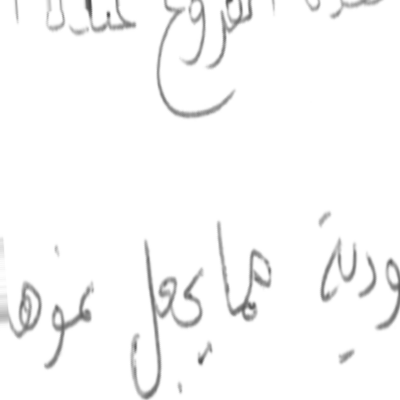 الفروع
ودية مما يجعل نموها